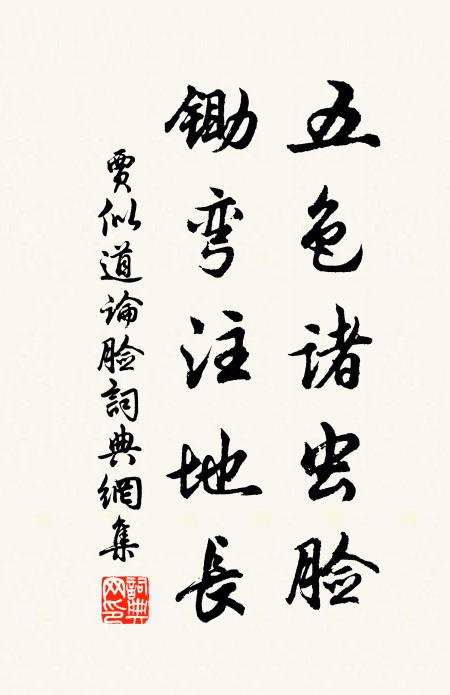 五色诸虫脸
锄弯注地长
賈似道論脸詞典網集
詞典網印